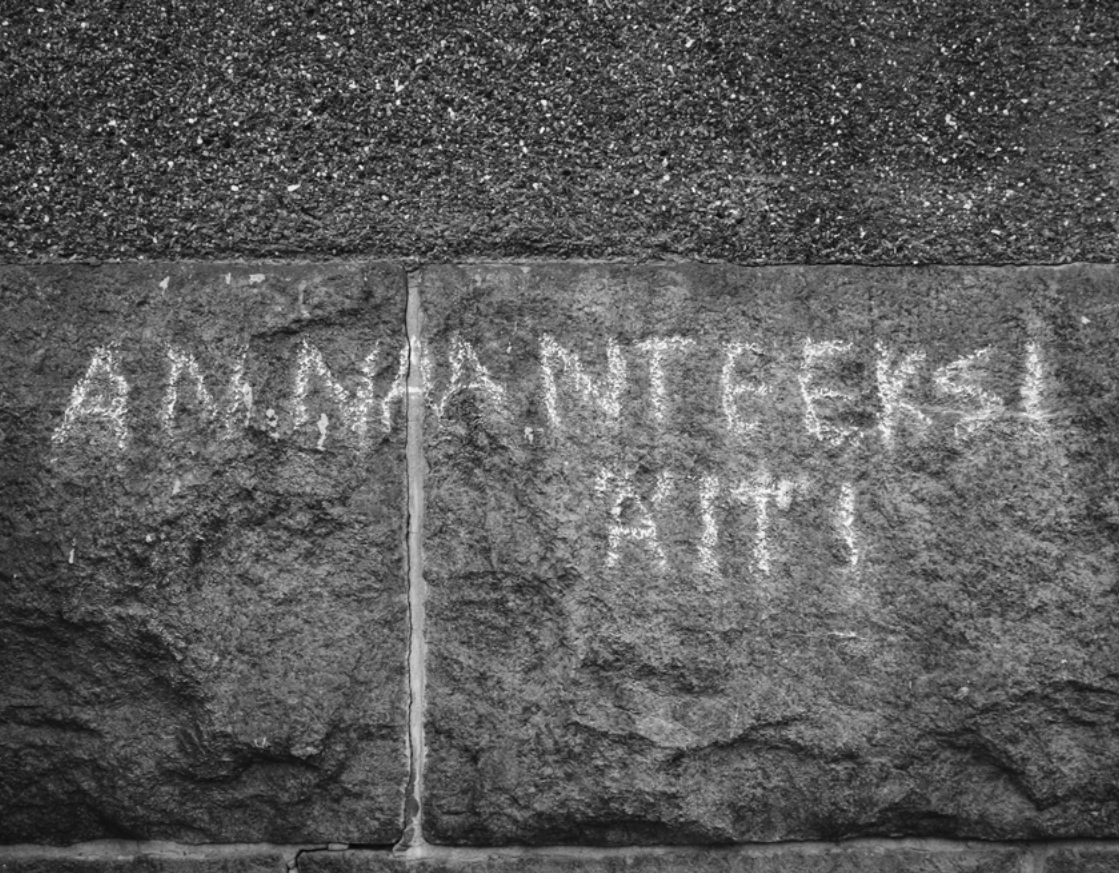 ANNA ANTEEKSI
ÄITI